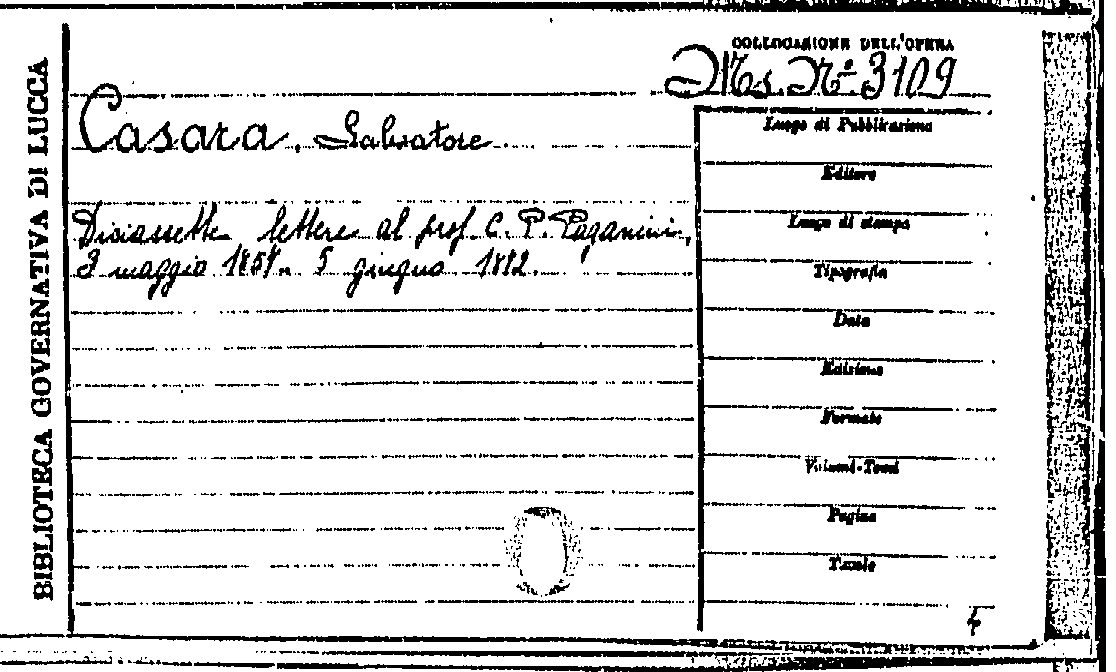 BIBLIOTECA GOVERNATIVA DI LUCCA
COLLOCAZIONE DELL'OPERA
Ms. Nº 3109
Casara, Salvatore.
Diciassette lettere al prof. C. P. Paganini,
3 maggio 1857 - 5 giugno 1882.
Luogo di Pubblicazione
Editore
Luogo di stampa
Tipografia
Data
Edizione
Formato
Volumi-Tomi
Pagine
Tavole